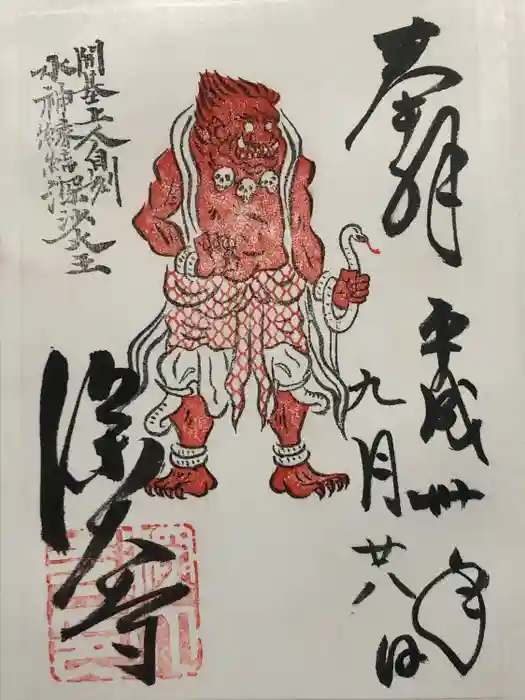 奉拝
平成卅年
九月廿八日
開基上人自刻
水神縁結深沙大王
深大寺